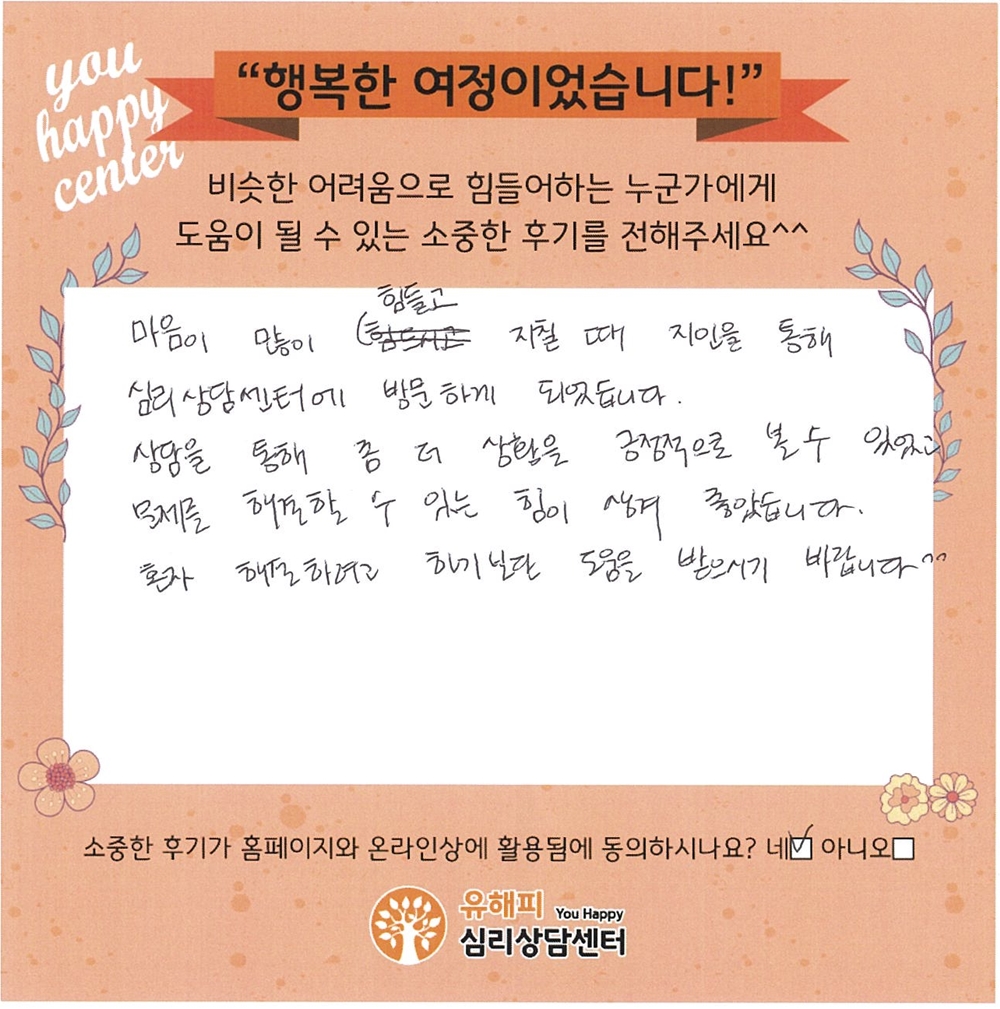 you
happy
center
“행복한 여정이었습니다!”
비슷한 어려움으로 힘들어하는 누군가에게
도움이 될 수 있는 소중한 후기를 전해주세요^^
힘들고
마음이 많이 ( 지칠 때 지인을 통해
심리상담센터에 방문하게 되었습니다.
상담을 통해 좀 더 상황을 긍정적으로 볼 수 있었고
문제를 해결할 수 있는 힘이 생겨 좋았습니다.
혼자 해결하려고 하기보단 도움을 받으시기 바랍니다^^
소중한 후기가 홈페이지와 온라인상에 활용됨에 동의하시나요? 네☑ 아니오☐
유해피 You Happy
심리상담센터